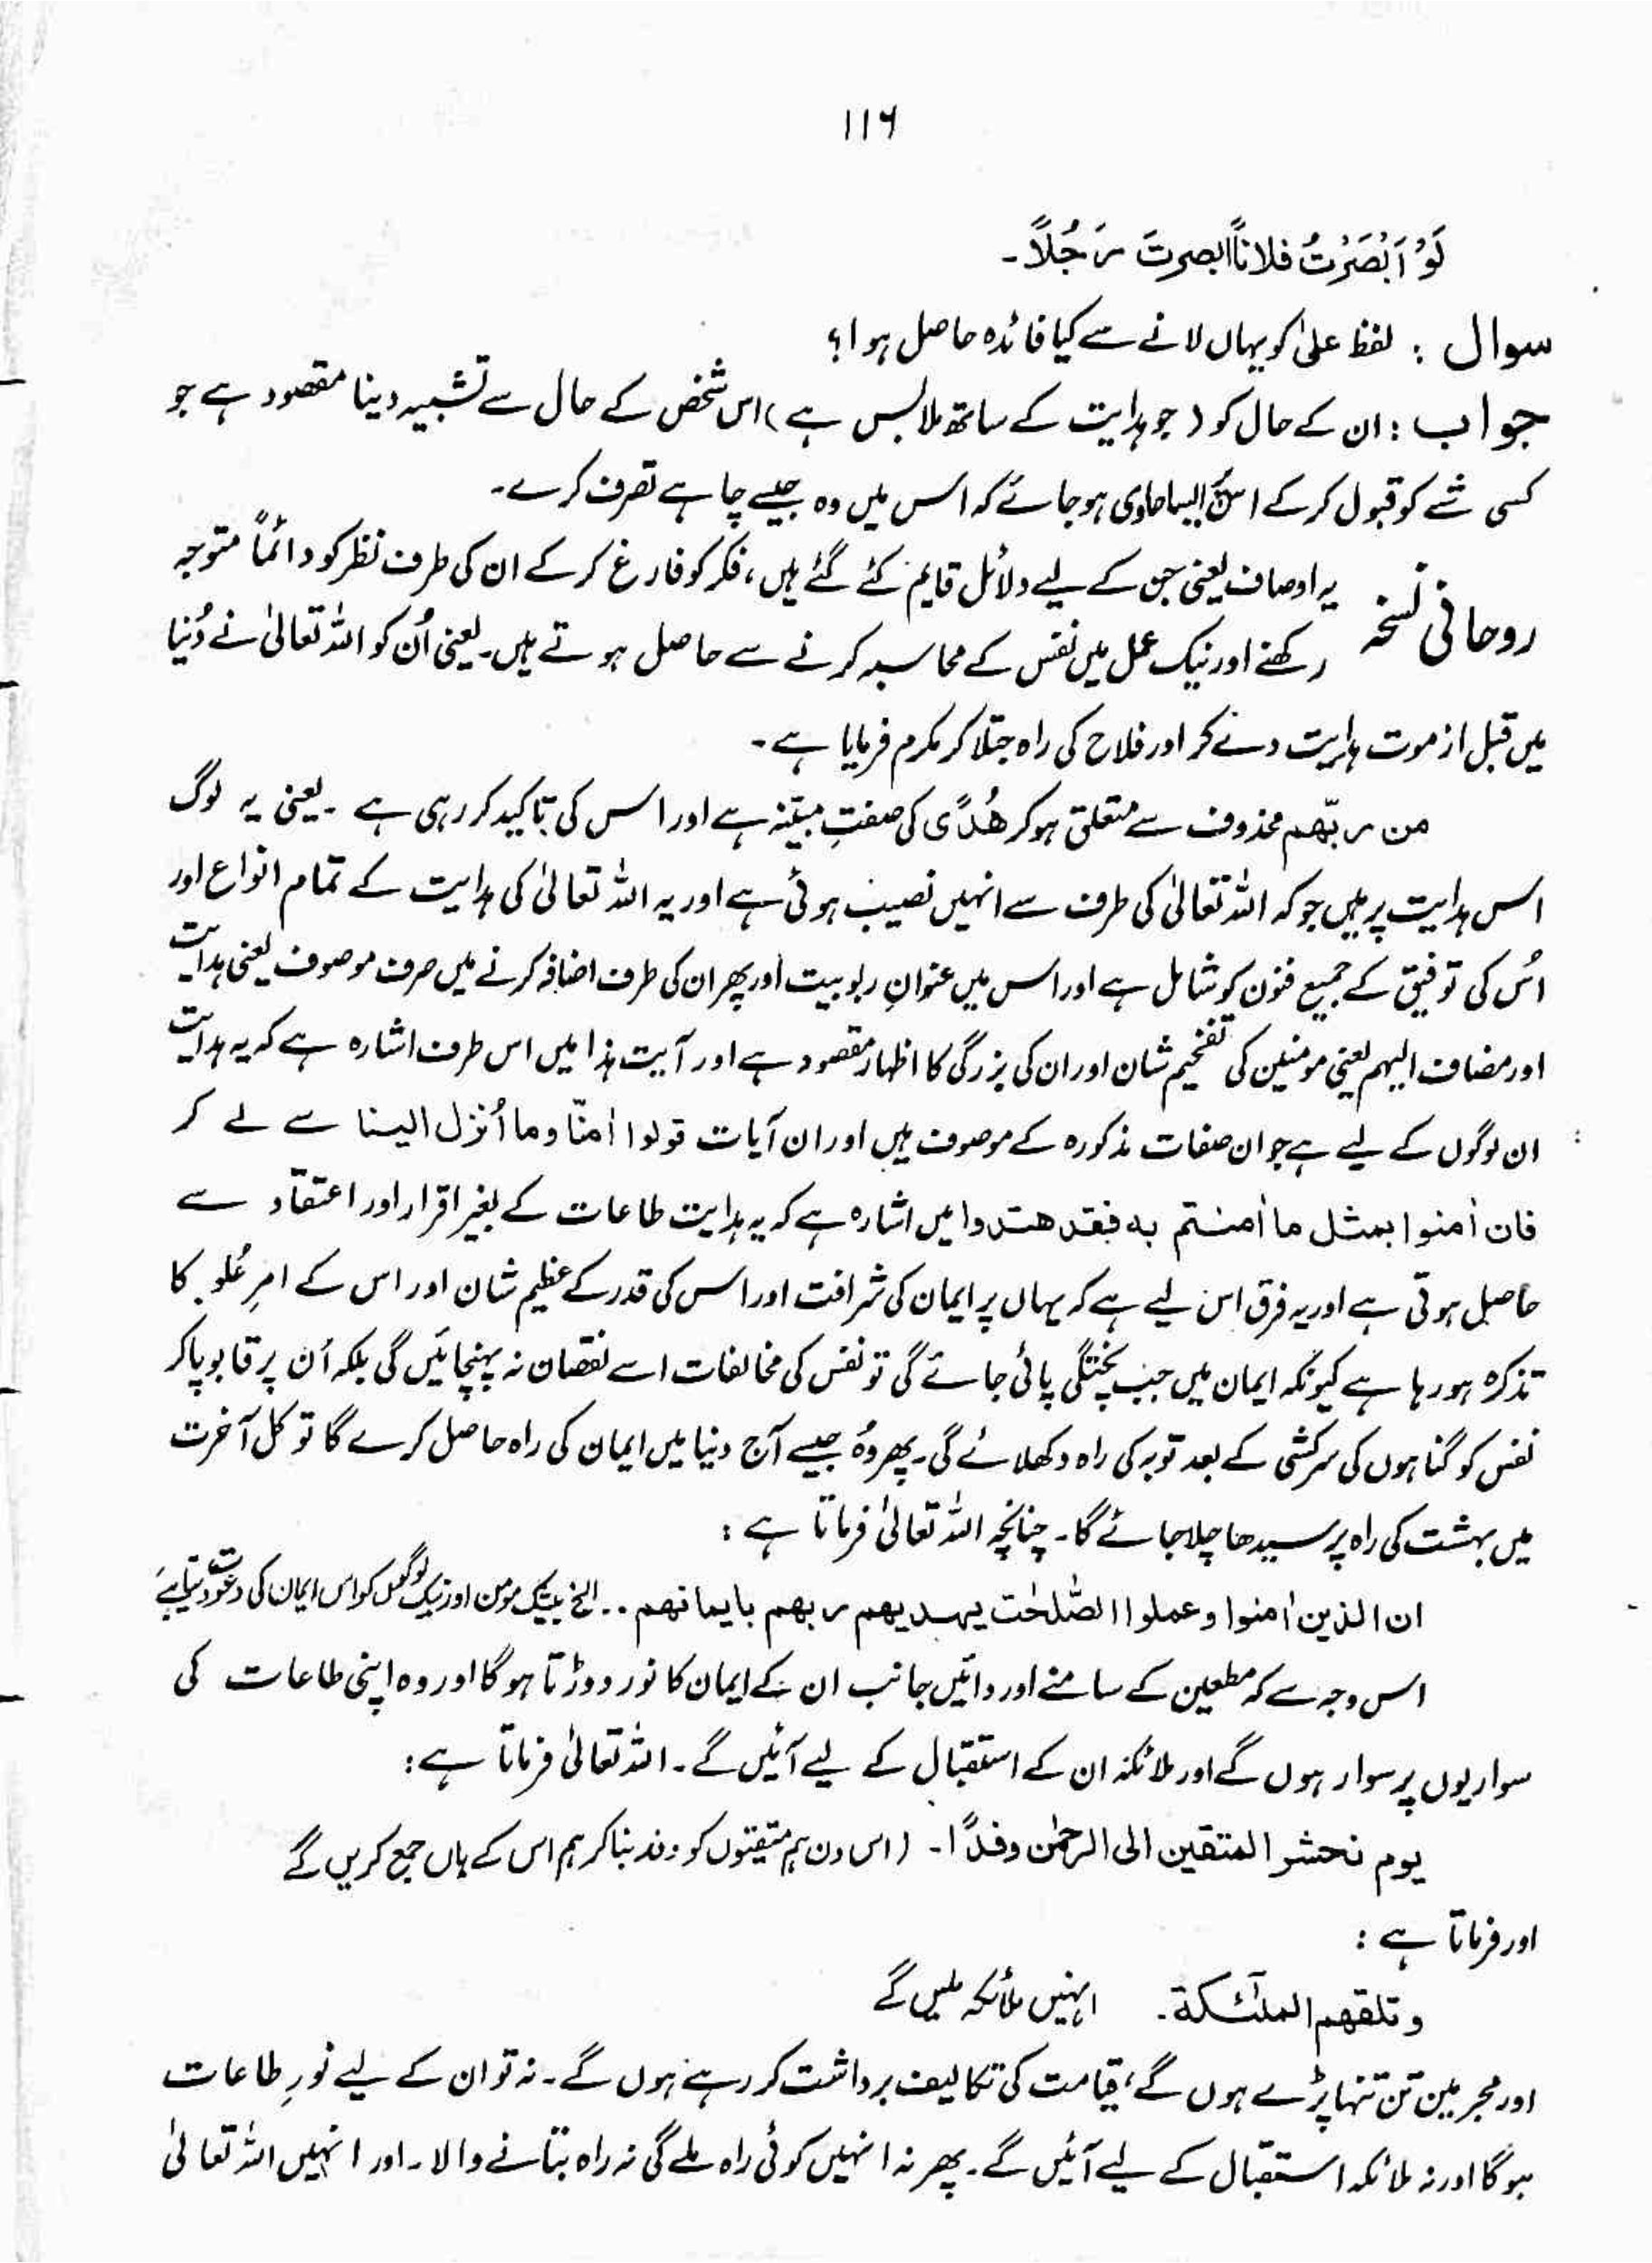 ۱۱۶
لَوْ اَبْصَرْتُ فلاناً ابصرتَ رَجُلاً۔
سوال : لفظ علیٰ کو یہاں لانے سے کیا فائدہ حاصل ہوا؟
جواب : ان کے حال کو (جو ہدایت کے ساتھ ملابس ہے) اس شخص کے حال سے تشبیہ دینا مقصود ہے جو
کسی شے کو قبول کر کے اس پر ایسا حاوی ہو جائے کہ اس میں وہ جیسے چاہے تصرف کرے۔
روحانی نسخہ یہ اوصاف یعنی جن کے لیے دلائل قایم کئے گئے ہیں، فکر کو فارغ کر کے ان کی طرف نظر کو دائماً متوجہ
رکھنے اور نیک عمل میں نفس کے محاسبہ کرنے سے حاصل ہوتے ہیں۔ یعنی اُن کو اللہ تعالیٰ نے دُنیا
میں قبل از موت ہدایت دے کر اور فلاح کی راہ جتلا کر مکرم فرمایا ہے۔
من ربّھم محذوف سے متعلق ہو کر ھُدًی کی صفتِ مبیّنہ ہے اور اس کی تاکید کر رہی ہے ۔ یعنی یہ لوگ
اس ہدایت پر ہیں جو کہ اللہ تعالیٰ کی طرف سے انہیں نصیب ہوئی ہے اور یہ اللہ تعالیٰ کی ہدایت کے تمام انواع اور
اُس کی توفیق کے جمیع فنون کو شامل ہے اور اس میں عنوانِ ربوبیت اور پھر ان کی طرف اضافہ کرنے میں صرف موصوف یعنی ہدایت
اور مضاف الیہم یعنی مومنین کی تفخیم شان اور ان کی بزرگی کا اظہار مقصود ہے اور آیت ہذا میں اس طرف اشارہ ہے کہ یہ ہدایت
ان لوگوں کے لیے ہے جو ان صفات مذکورہ کے موصوف ہیں اور ان آیات قولوا اٰمنّا وما اُنزل الینا سے لے کر
فان اٰمنوا بمثل ما اٰمنتم بہ فقد ھتدوا میں اشارہ ہے کہ یہ ہدایت طاعات کے بغیر اقرار اور اعتقاد سے
حاصل ہوتی ہے اور یہ فرق اس لیے ہے کہ یہاں پر ایمان کی شرافت اور اس کی قدر کے عظیم شان اور اس کے امرِ عُلو کا
تذکرہ ہو رہا ہے کیونکہ ایمان میں جب پختگی پائی جائے گی تو نفس کی مخالفات اسے نقصان نہ پہنچائیں گی بلکہ اُن پر قابو پا کر
نفس کو گناہوں کی سرکشی کے بعد توبہ کی راہ دکھلائے گی۔ پھر وہُ جیسے آج دنیا میں ایمان کی راہ حاصل کرے گا تو کل آخرت
میں بہشت کی راہ پر سیدھا چلا جائے گا۔ چنانچہ اللہ تعالیٰ فرماتا ہے :
ان الذین اٰمنوا وعملوا الصّٰلحٰت یہدیھم ربھم بایمانھم .. الخ بیشک مومن اور نیک عمل لوگوں کو اس ایمان کی دعوت دیتا ہے
اس وجہ سے کہ مطعین کے سامنے اور دائیں جانب ان کے ایمان کا نور دوڑتا ہو گا اور وہ اپنی طاعات کی
سواریوں پر سوار ہوں گے اور ملائکہ ان کے استقبال کے لیے آئیں گے۔ اللہ تعالیٰ فرماتا ہے :
یوم نحشر المتقین الی الرحمٰن وفدًا۔ (اس دن ہم متقیوں کو وفد بنا کر ہم اس کے ہاں جمع کریں گے
اور فرماتا ہے :
وتلقھم الملٰٓئکة۔ انہیں ملائکہ ملیں گے
اور مجرمین تن تنہا پڑے ہوں گے، قیامت کی تکالیف برداشت کر رہے ہوں گے۔ نہ تو ان کے لیے نورِ طاعات
ہوگا اور نہ ملائکہ استقبال کے لیے آئیں گے۔ پھر نہ انہیں کوئی راہ ملے گی نہ راہ بتانے والا۔ اور انہیں اللہ تعالیٰ